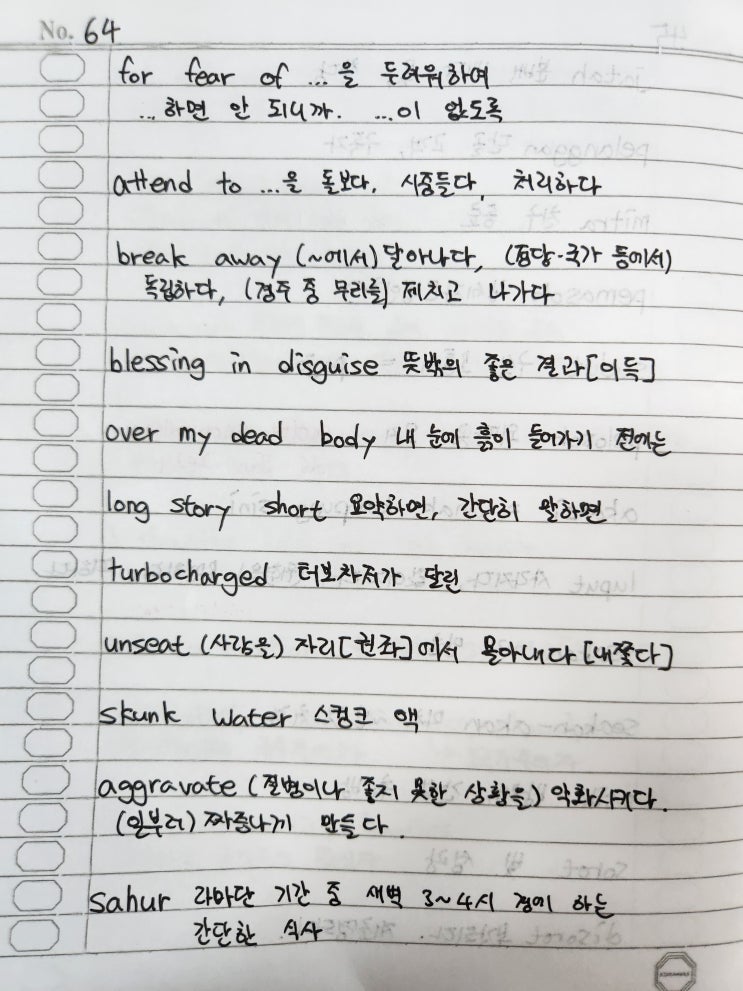 No. 64
for fear of ...을 두려워하여
...하면 안 되니까. ...이 없도록
attend to ...을 돌보다, 시중들다, 처리하다
break away (~에서) 달아나다, (정당·국가 등에서)
독립하다, (경주 중 무리를) 제치고 나가다
blessing in disguise 뜻밖의 좋은 결과[이득]
over my dead body 내 눈에 흙이 들어가기 전에는
long story short 요약하면, 간단히 말하면
turbocharged 터보차저가 달린
unseat (사람을) 자리[권좌]에서 몰아내다[내쫓다]
skunk water 스컹크 액
aggravate (질병이나 좋지 못한 상황을) 악화시키다.
(일부러) 짜증나게 만들다.
sahur 라마단 기간 중 새벽 3~4시 경에 하는
간단한 식사